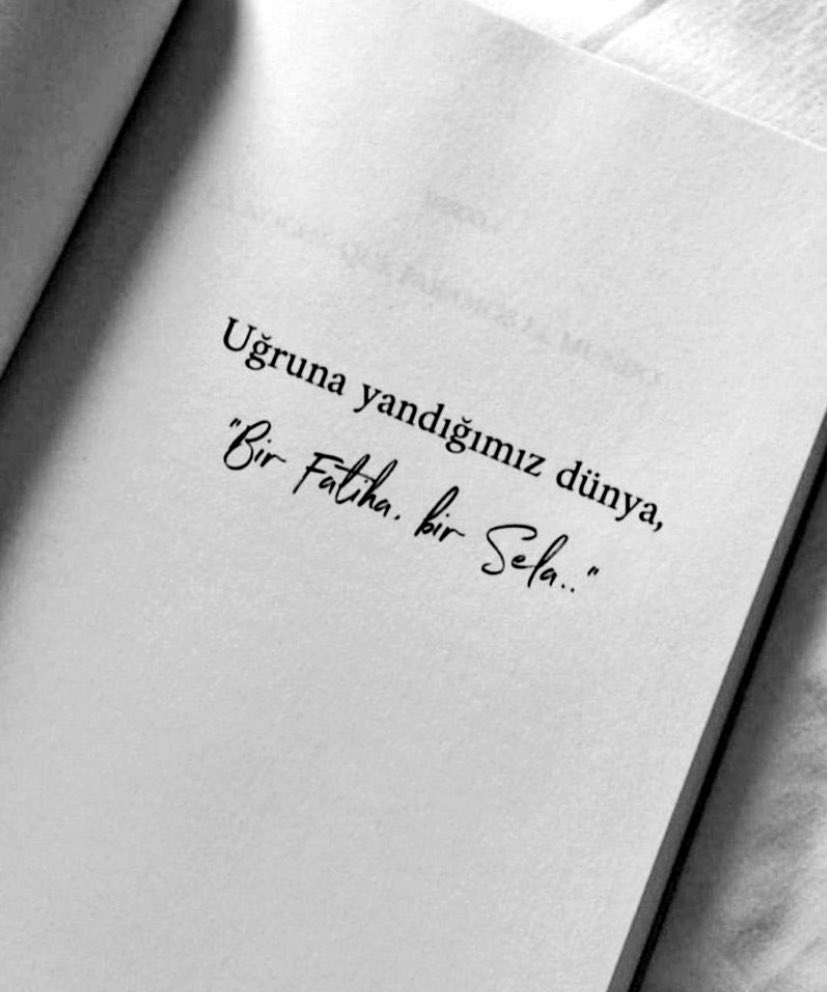 Uğruna yandığımız dünya,
"Bir Fatiha. bir Sela.."